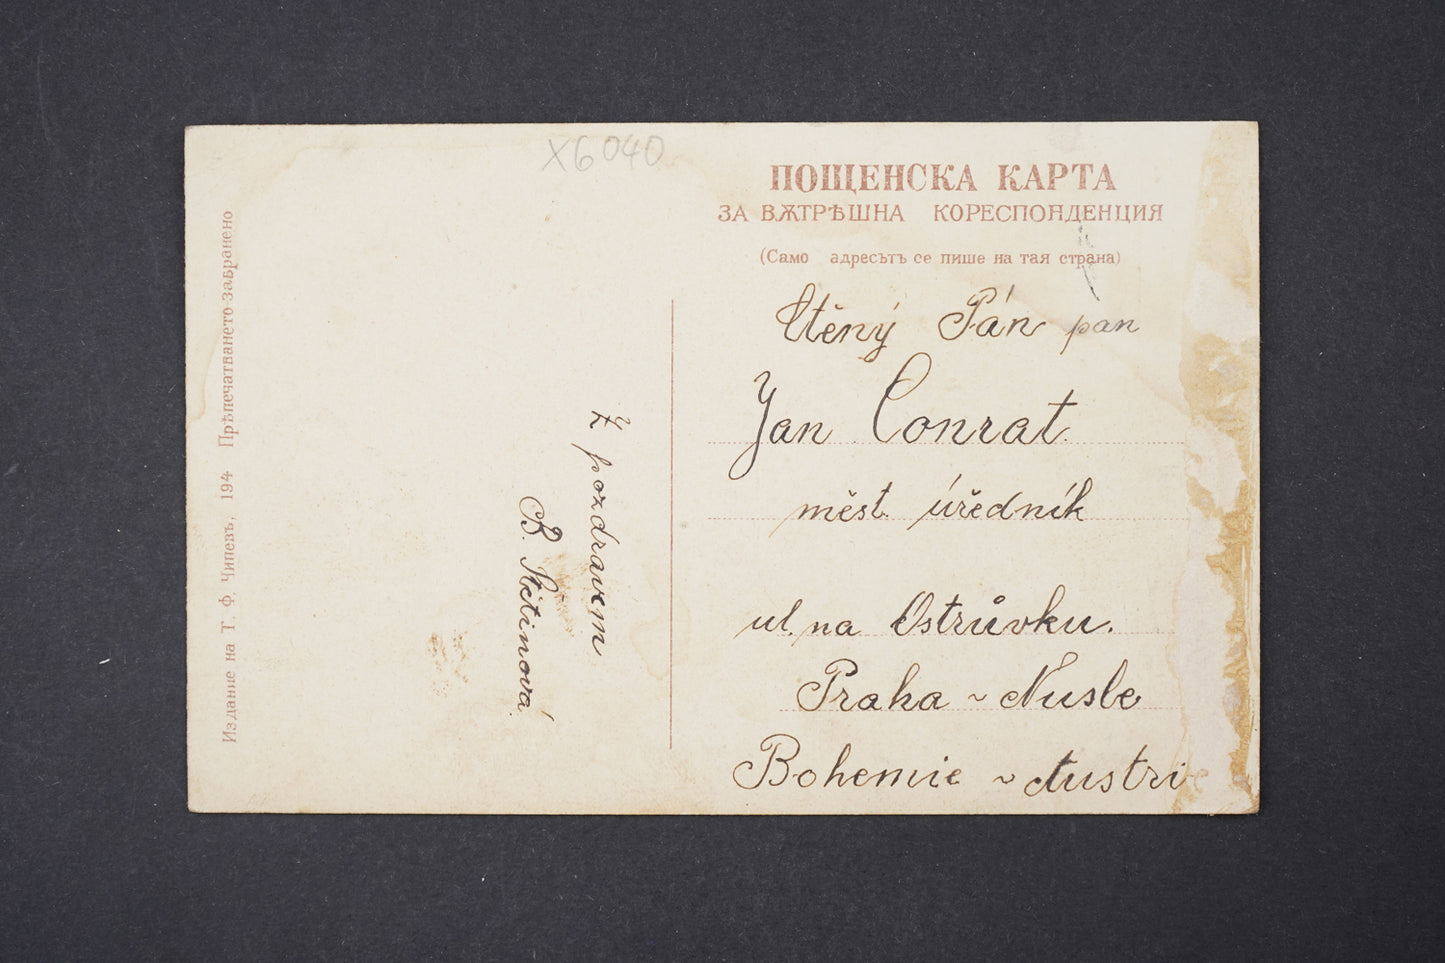 X6040
ПОЩЕНСКА КАРТА
ЗА ВѪТРѢШНА КОРЕСПОНДЕНЦИЯ
(Само адресътъ се пише на тая страна)
Ctěný Pán pan
Jan Conrat
měst. úředník
ul. na Ostrůvku.
Praha ~ Nusle
Bohemie ~ Austrie
Z pozdravem
B. Štětinová.
Издание на Т. Ф. Чипевъ, 194 Прѣпечатването забранено